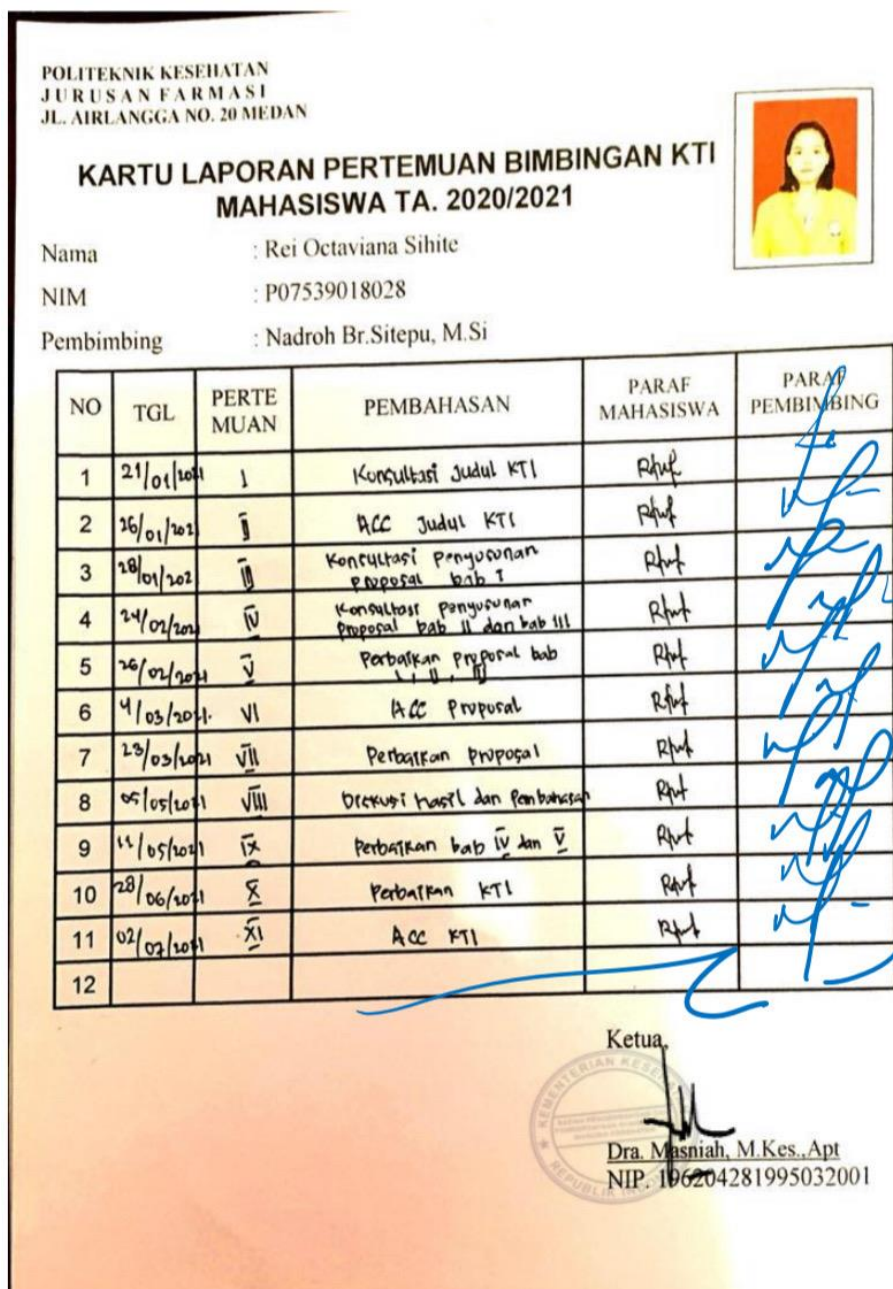 POLITEKNIK KESEHATAN
JURUSAN FARMASI
JL. AIRLANGGA NO. 20 MEDAN
KARTU LAPORAN PERTEMUAN BIMBINGAN KTI
MAHASISWA TA. 2020/2021
Nama : Rei Octaviana Sihite
NIM : P07539018028
Pembimbing : Nadroh Br.Sitepu, M.Si
NO TGL PERTE MUAN PEMBAHASAN PARAF MAHASISWA PARAF PEMBIMBING
1 21/01/2021 I Konsultasi Judul KTI
2 26/01/202 II ACC Judul KTI
3 28/01/202 III Konsultasi Penyusunan
proposal bab I
4 24/02/202 IV Konsultasi penyusunan
Proposal bab II dan bab III
5 26/02/2021 V Perbaikan proposal bab
I, II, III
6 4/03/2021. VI ACC Proposal
7 23/03/2021 VII Perbaikan proposal
8 05/05/2021 VIII Diskusi hasil dan Pembahasan
9 11/05/2021 IX Perbaikan bab IV dan V
10 28/06/2021 X Perbaikan KTI
11 02/07/2021 XI ACC KTI
12
Ketua,
KEMENTERIAN KESEHATAN
REPUBLIK INDONESIA
Dra. Masniah, M.Kes.,Apt
NIP. 196204281995032001